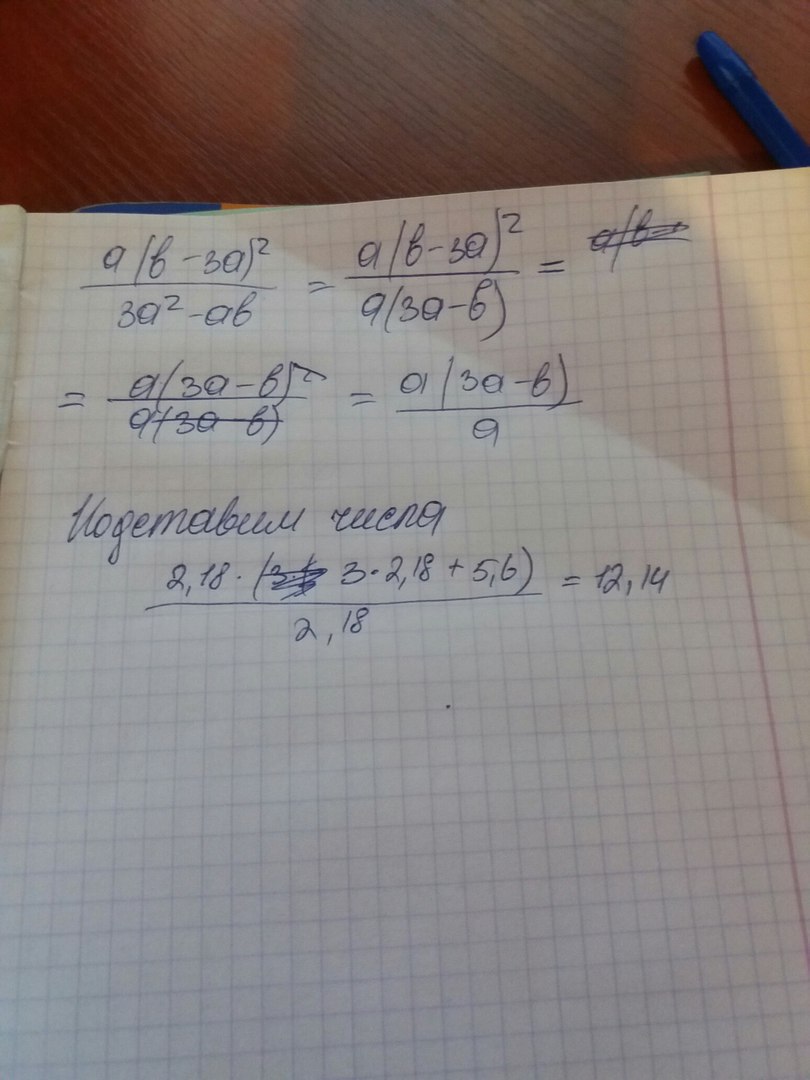 a(b-3a)² / 3a²-ab = a(b-3a)² / a(3a-b) =
= a(3a-b)² / a(3a-b) = a(3a-b) / a
Подставим числа
2,18·(3·2,18+5,6) / 2,18 = 12,14